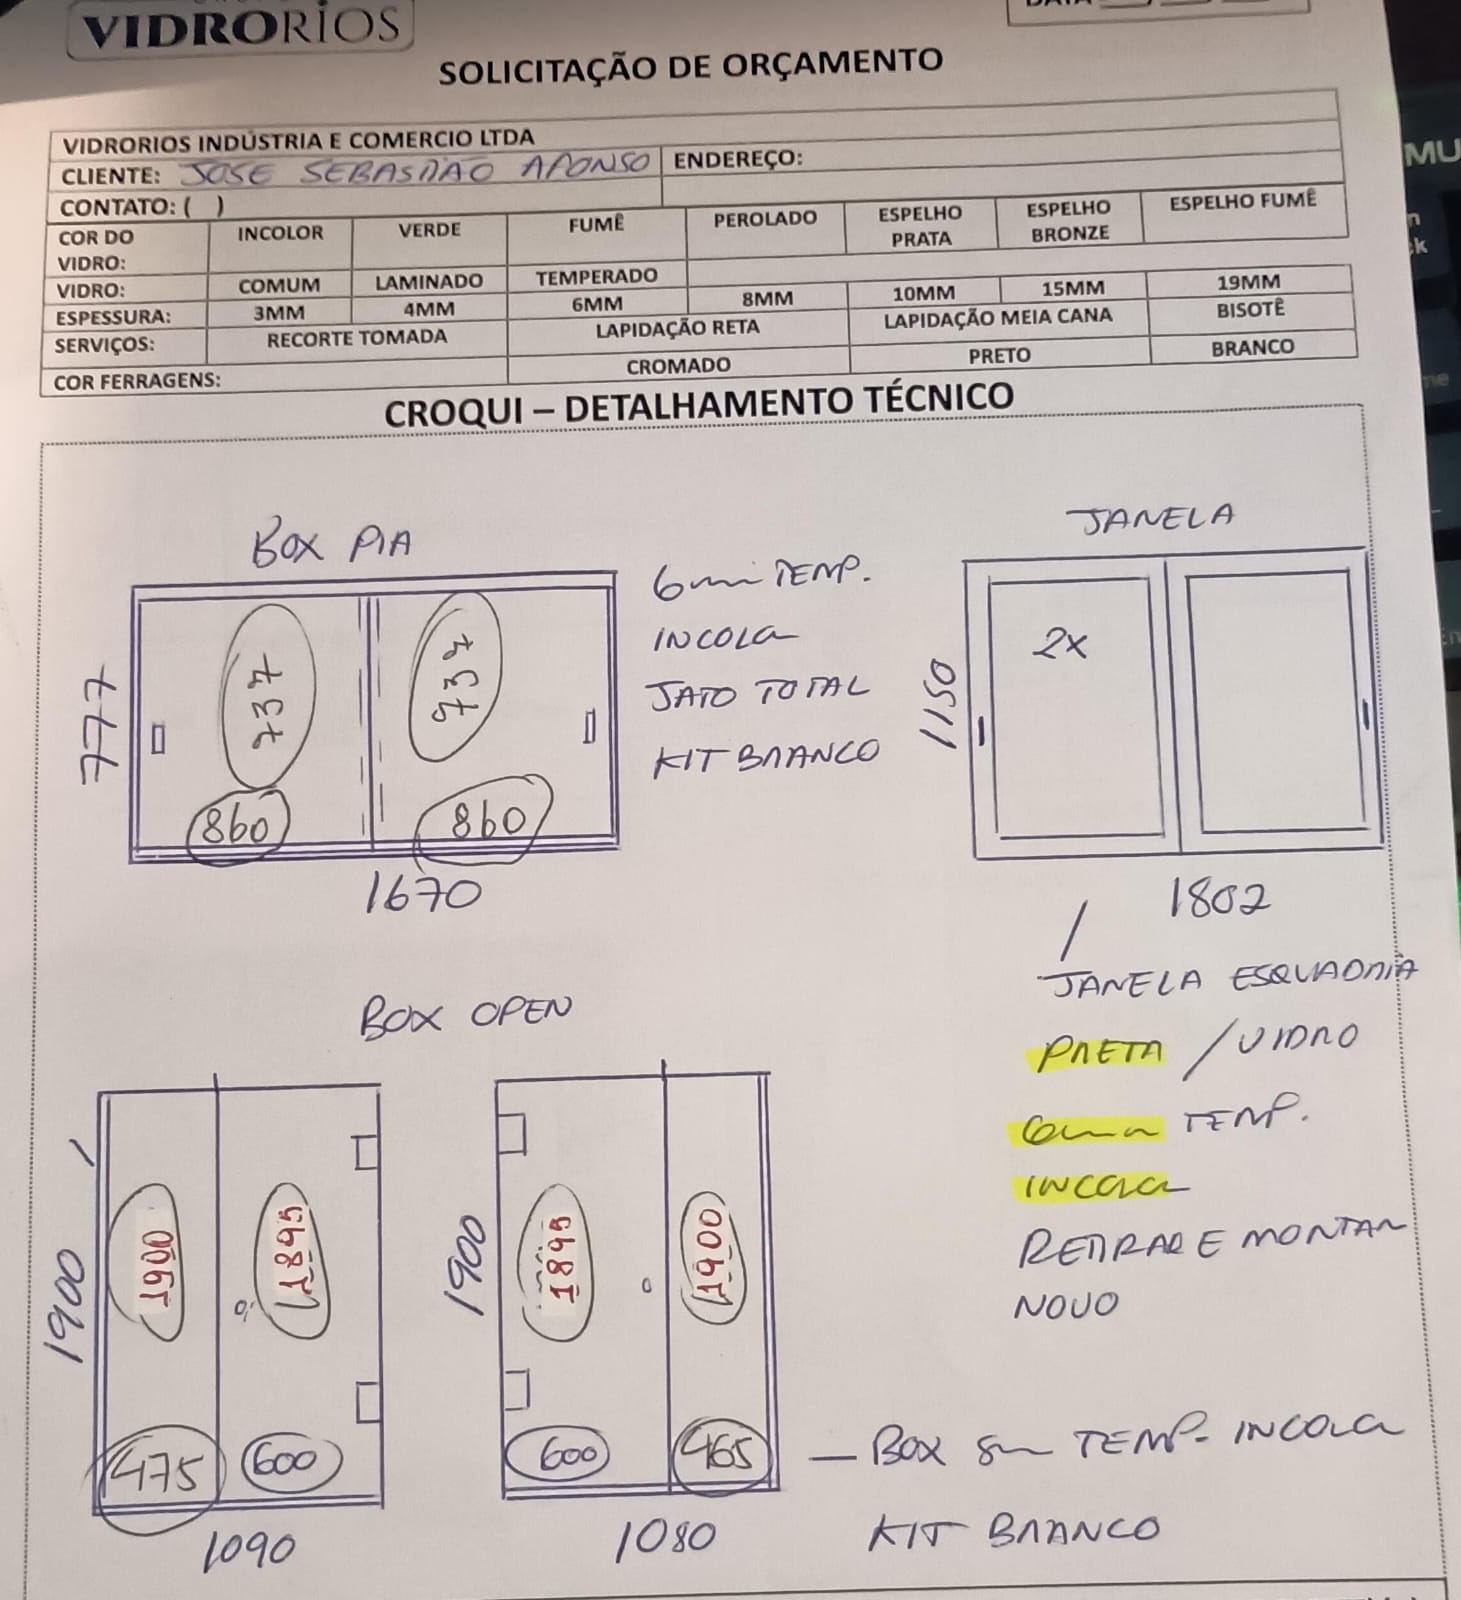 VIDRORIOS
DATA
SOLICITAÇÃO DE ORÇAMENTO
VIDRORIOS INDÚSTRIA E COMERCIO LTDA
CLIENTE: JOSE SEBASTIÃO AFONSO ENDEREÇO:
CONTATO: ( )
COR DO VIDRO: INCOLOR VERDE FUMÊ PEROLADO ESPELHO PRATA ESPELHO BRONZE ESPELHO FUMÊ
VIDRO: COMUM LAMINADO TEMPERADO
ESPESSURA: 3MM 4MM 6MM 8MM 10MM 15MM 19MM
SERVIÇOS: RECORTE TOMADA LAPIDAÇÃO RETA LAPIDAÇÃO MEIA CANA BISOTÊ
COR FERRAGENS: CROMADO PRETO BRANCO
CROQUI – DETALHAMENTO TÉCNICO
BOX PIA
777
737
737
860
860
1670
6mm TEMP.
INCOLOR
JATO TOTAL
KIT BRANCO
JANELA
2X
1150
1802
JANELA ESQUADRIA
PRETA / VIDRO
6mm TEMP.
INCOLOR
RETIRAR E MONTAR
NOVO
BOX OPEN
1900
1900
1895
475
600
1090
1900
1895
1900
600
465
1080
— BOX 8m TEMP. INCOLOR
KIT BRANCO